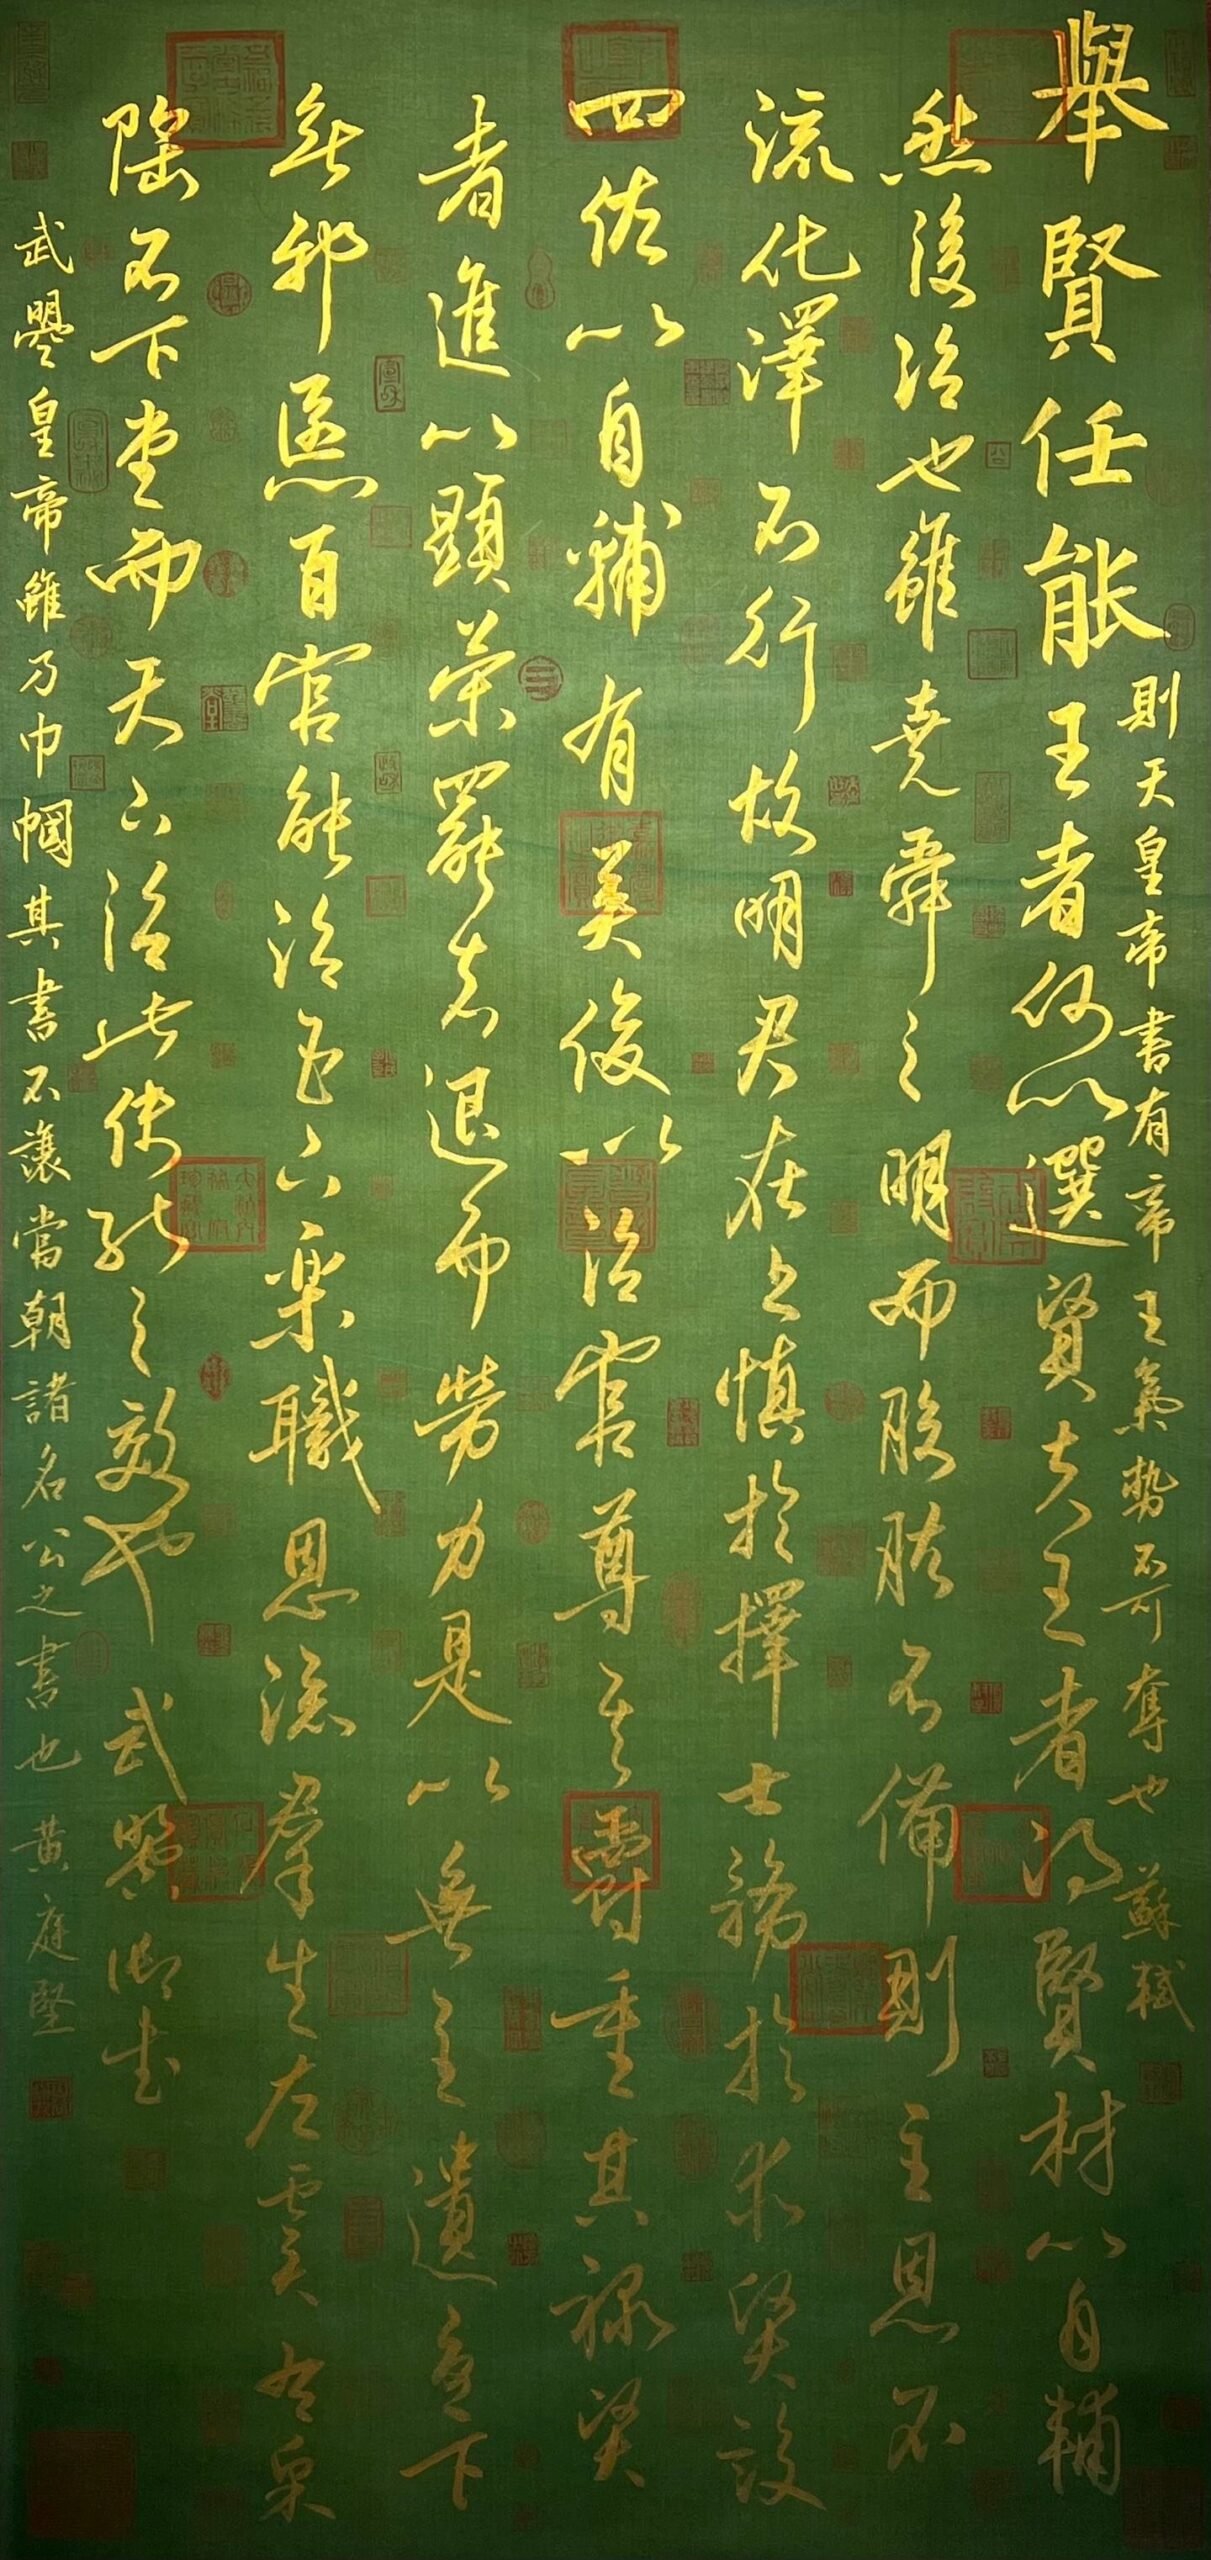 則天皇帝書有帝王氣勢不可奪也 蘇軾
舉賢任能王者何以選賢夫王者得賢材以自輔
然後治也雖堯舜之明而股肱不備則主恩不
流化澤不行故明君在上慎於擇士務於求賢設
四佐以自輔有英俊以治官尊其爵重其祿賢
者進以顯榮罷者退而勞力是以無主遺憂下
無邪慝百官能治臣下樂職恩流群生左虞右皋
陶不下堂而天下治此使能之效也 武曌御書
武曌皇帝雖乃巾幗其書不讓當朝諸名公之書也 黄庭堅